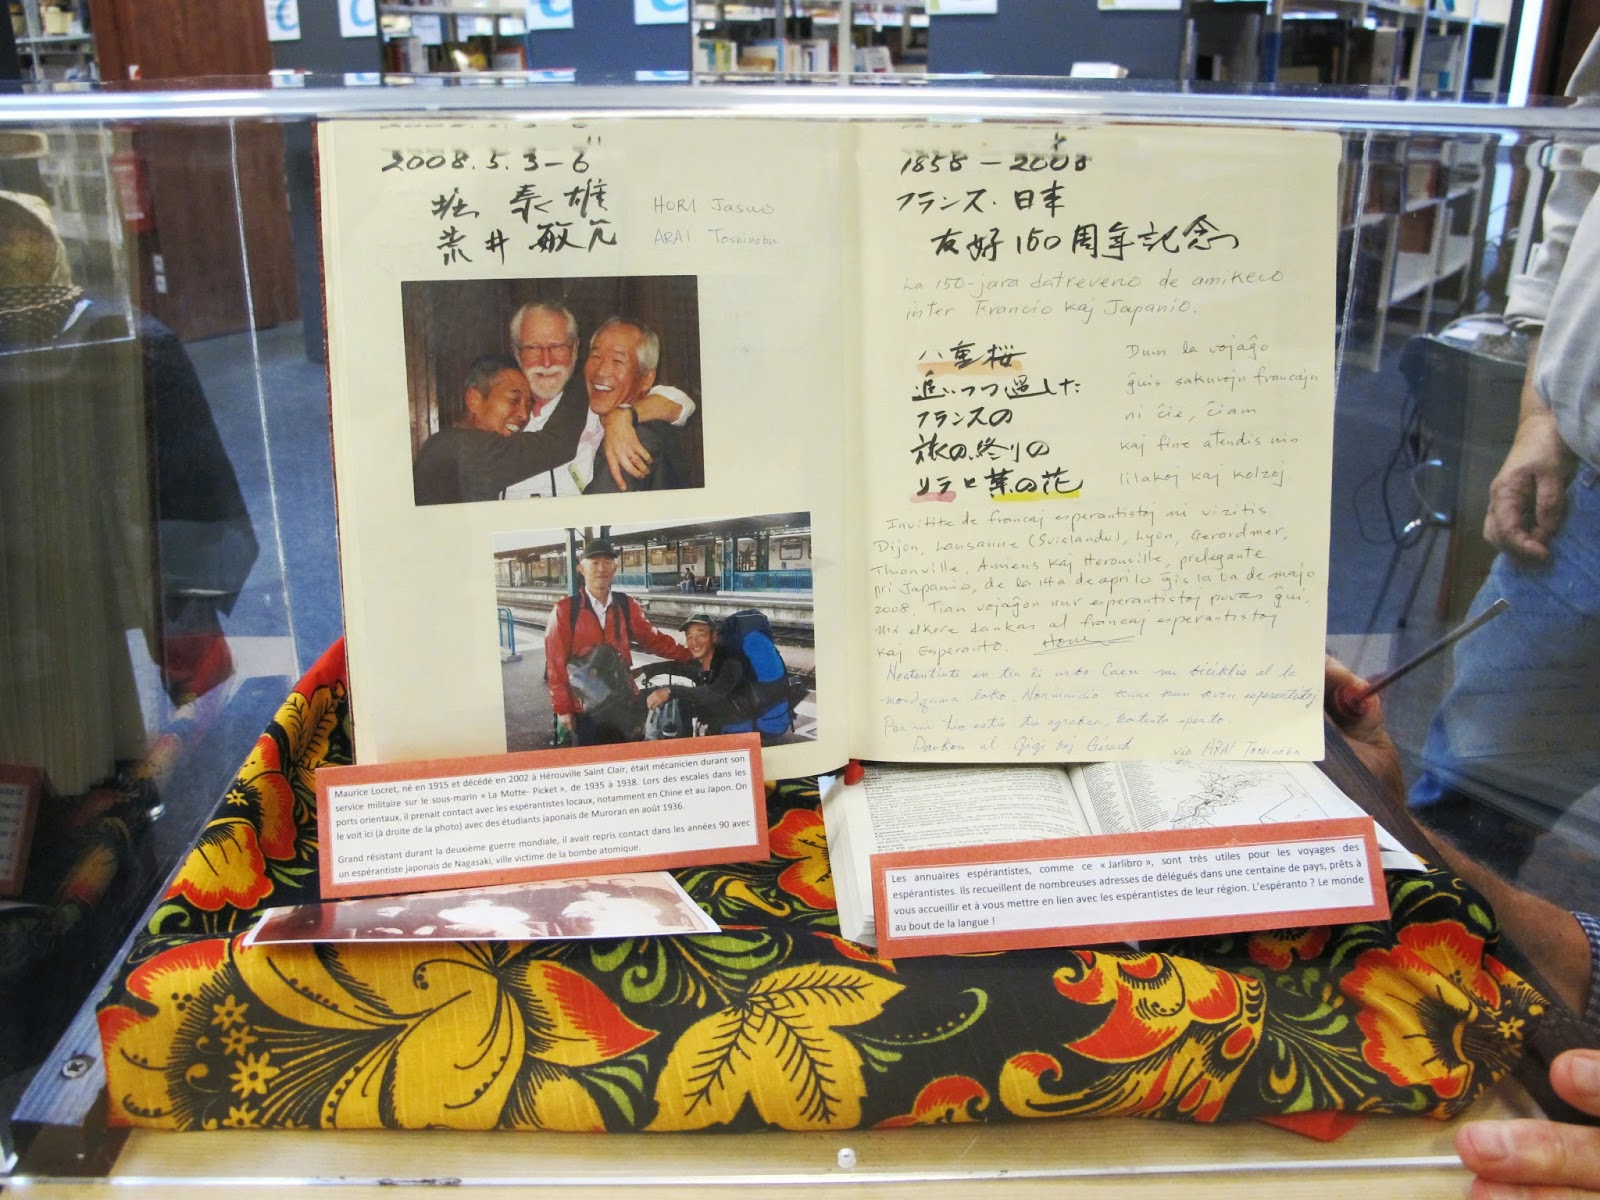 2008.5.3-6
堀 泰雄 HORI Jasuo
荒井 敏允 ARAI Toshinobu
1858 – 2008
フランス・日本
友好150周年記念
La 150-jara datreveno de amikeco
inter Francio kaj Japanio.
八重桜
追いつつ過した
フランスの
旅の終りの
リラと菜の花
Dum la vojaĝo
ĝuis sakurojn francajn
ni ĉie, ĉiam
kaj fine atendis nin
lilakoj kaj kolzoj.
Invitite de francaj esperantistoj ni vizitis
Dijon, Lausanne (Svislando), Lyon, Gerardmer,
Thionville, Amiens kaj Hérouville, prelegante
pri Japanio, de la 14a de aprilo ĝis la 6a de majo
2008. Tian vojaĝon nur esperantistoj povas ĝui.
Mi elkore dankas al francaj esperantistoj
kaj Esperanto.
en urbo Caen mi biciklis al la
loko. esperantistoj
Por mi
Dankon al Gigi kaj Gérard via ARAI Toshinobu
Maurice Locret, né en 1915 et décédé en 2002 à Hérouville Saint Clair, était mécanicien durant son
service militaire sur le sous-marin « La Motte- Picket », de 1935 à 1938. Lors des escales dans les
ports orientaux, il prenait contact avec les espérantistes locaux, notamment en Chine et au Japon. On
le voit ici (à droite de la photo) avec des étudiants japonais de Muroran en août 1936.
Grand résistant durant la deuxième guerre mondiale, il avait repris contact dans les années 90 avec
un espérantiste japonais de Nagasaki, ville victime de la bombe atomique.
Les annuaires espérantistes, comme ce « Jarlibro », sont très utiles pour les voyages des
espérantistes. Ils recueillent de nombreuses adresses de délégués dans une centaine de pays, prêts à
vous accueillir et à vous mettre en lien avec les espérantistes de leur région. L'espéranto ? Le monde
au bout de la langue !